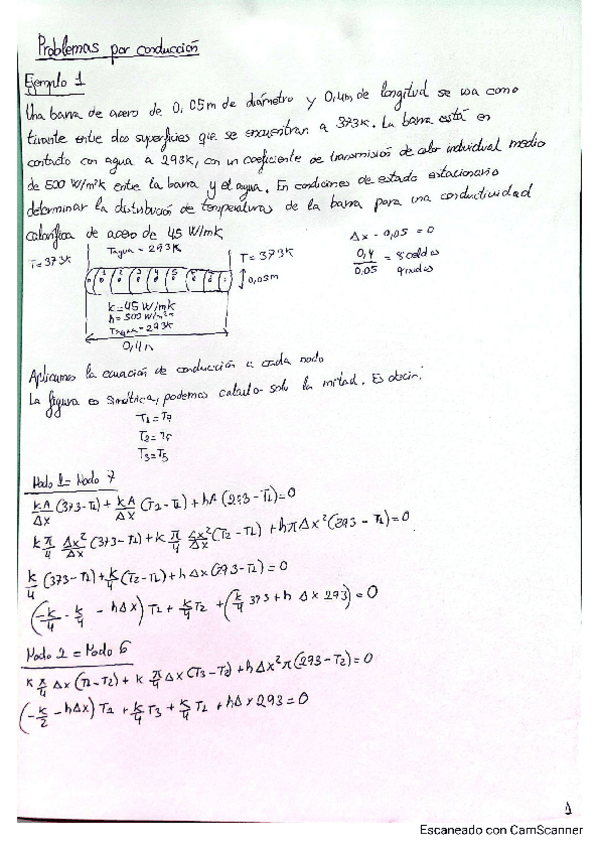 Problemas por conducción
Ejemplo 1
Una barra de acero de 0,05m de diámetro y 0,4m de longitud se usa como
tirante entre dos superficies que se encuentran a 373K. La barra está en
contacto con agua a 293K, con un coeficiente de transmisión de calor individual medio
de 500 W/m²K entre la barra y el agua. En condiciones de estado estacionario
determinar la distribución de temperaturas de la barra para una conductividad
calorífica de acero de 45 W/mK
T=373K
Tagua = 293K
T=373K
0,05m
k=45 W/mk
h=500 W/m²K
Tagua=293K
0,4m
Δx - 0,05 = 0
0,4/0,05 = 8 celdas
Aplicamos la ecuación de conducción a cada nodo
La figura es simétrica, podemos calcular solo la mitad. Es decir:
T1 = T7
T2 = T6
T3 = T5
Nodo 1 = Nodo 7
kA/Δx (373-T1) + kA/Δx (T2-T1) + hA (293-T1)=0
k π/4 Δx²/Δx (373-T1) + k π/4 Δx²/Δx (T2-T1) + hπΔx² (293-T1)=0
k/4 (373-T1) + k/4 (T2-T1) + hΔx (293-T1)=0
(-k/4 - k/4 - hΔx) T1 + k/4 T2 + (k/4 373 + h Δx 293) = 0
Nodo 2 = Nodo 6
k π/4 Δx (T1-T2) + k π/4 Δx (T3-T2) + hΔx² π (293-T2)=0
(-k/2 - hΔx) T2 + k/4 T3 + k/4 T1 + hΔx 293 = 0
1
Escaneado con CamScanner